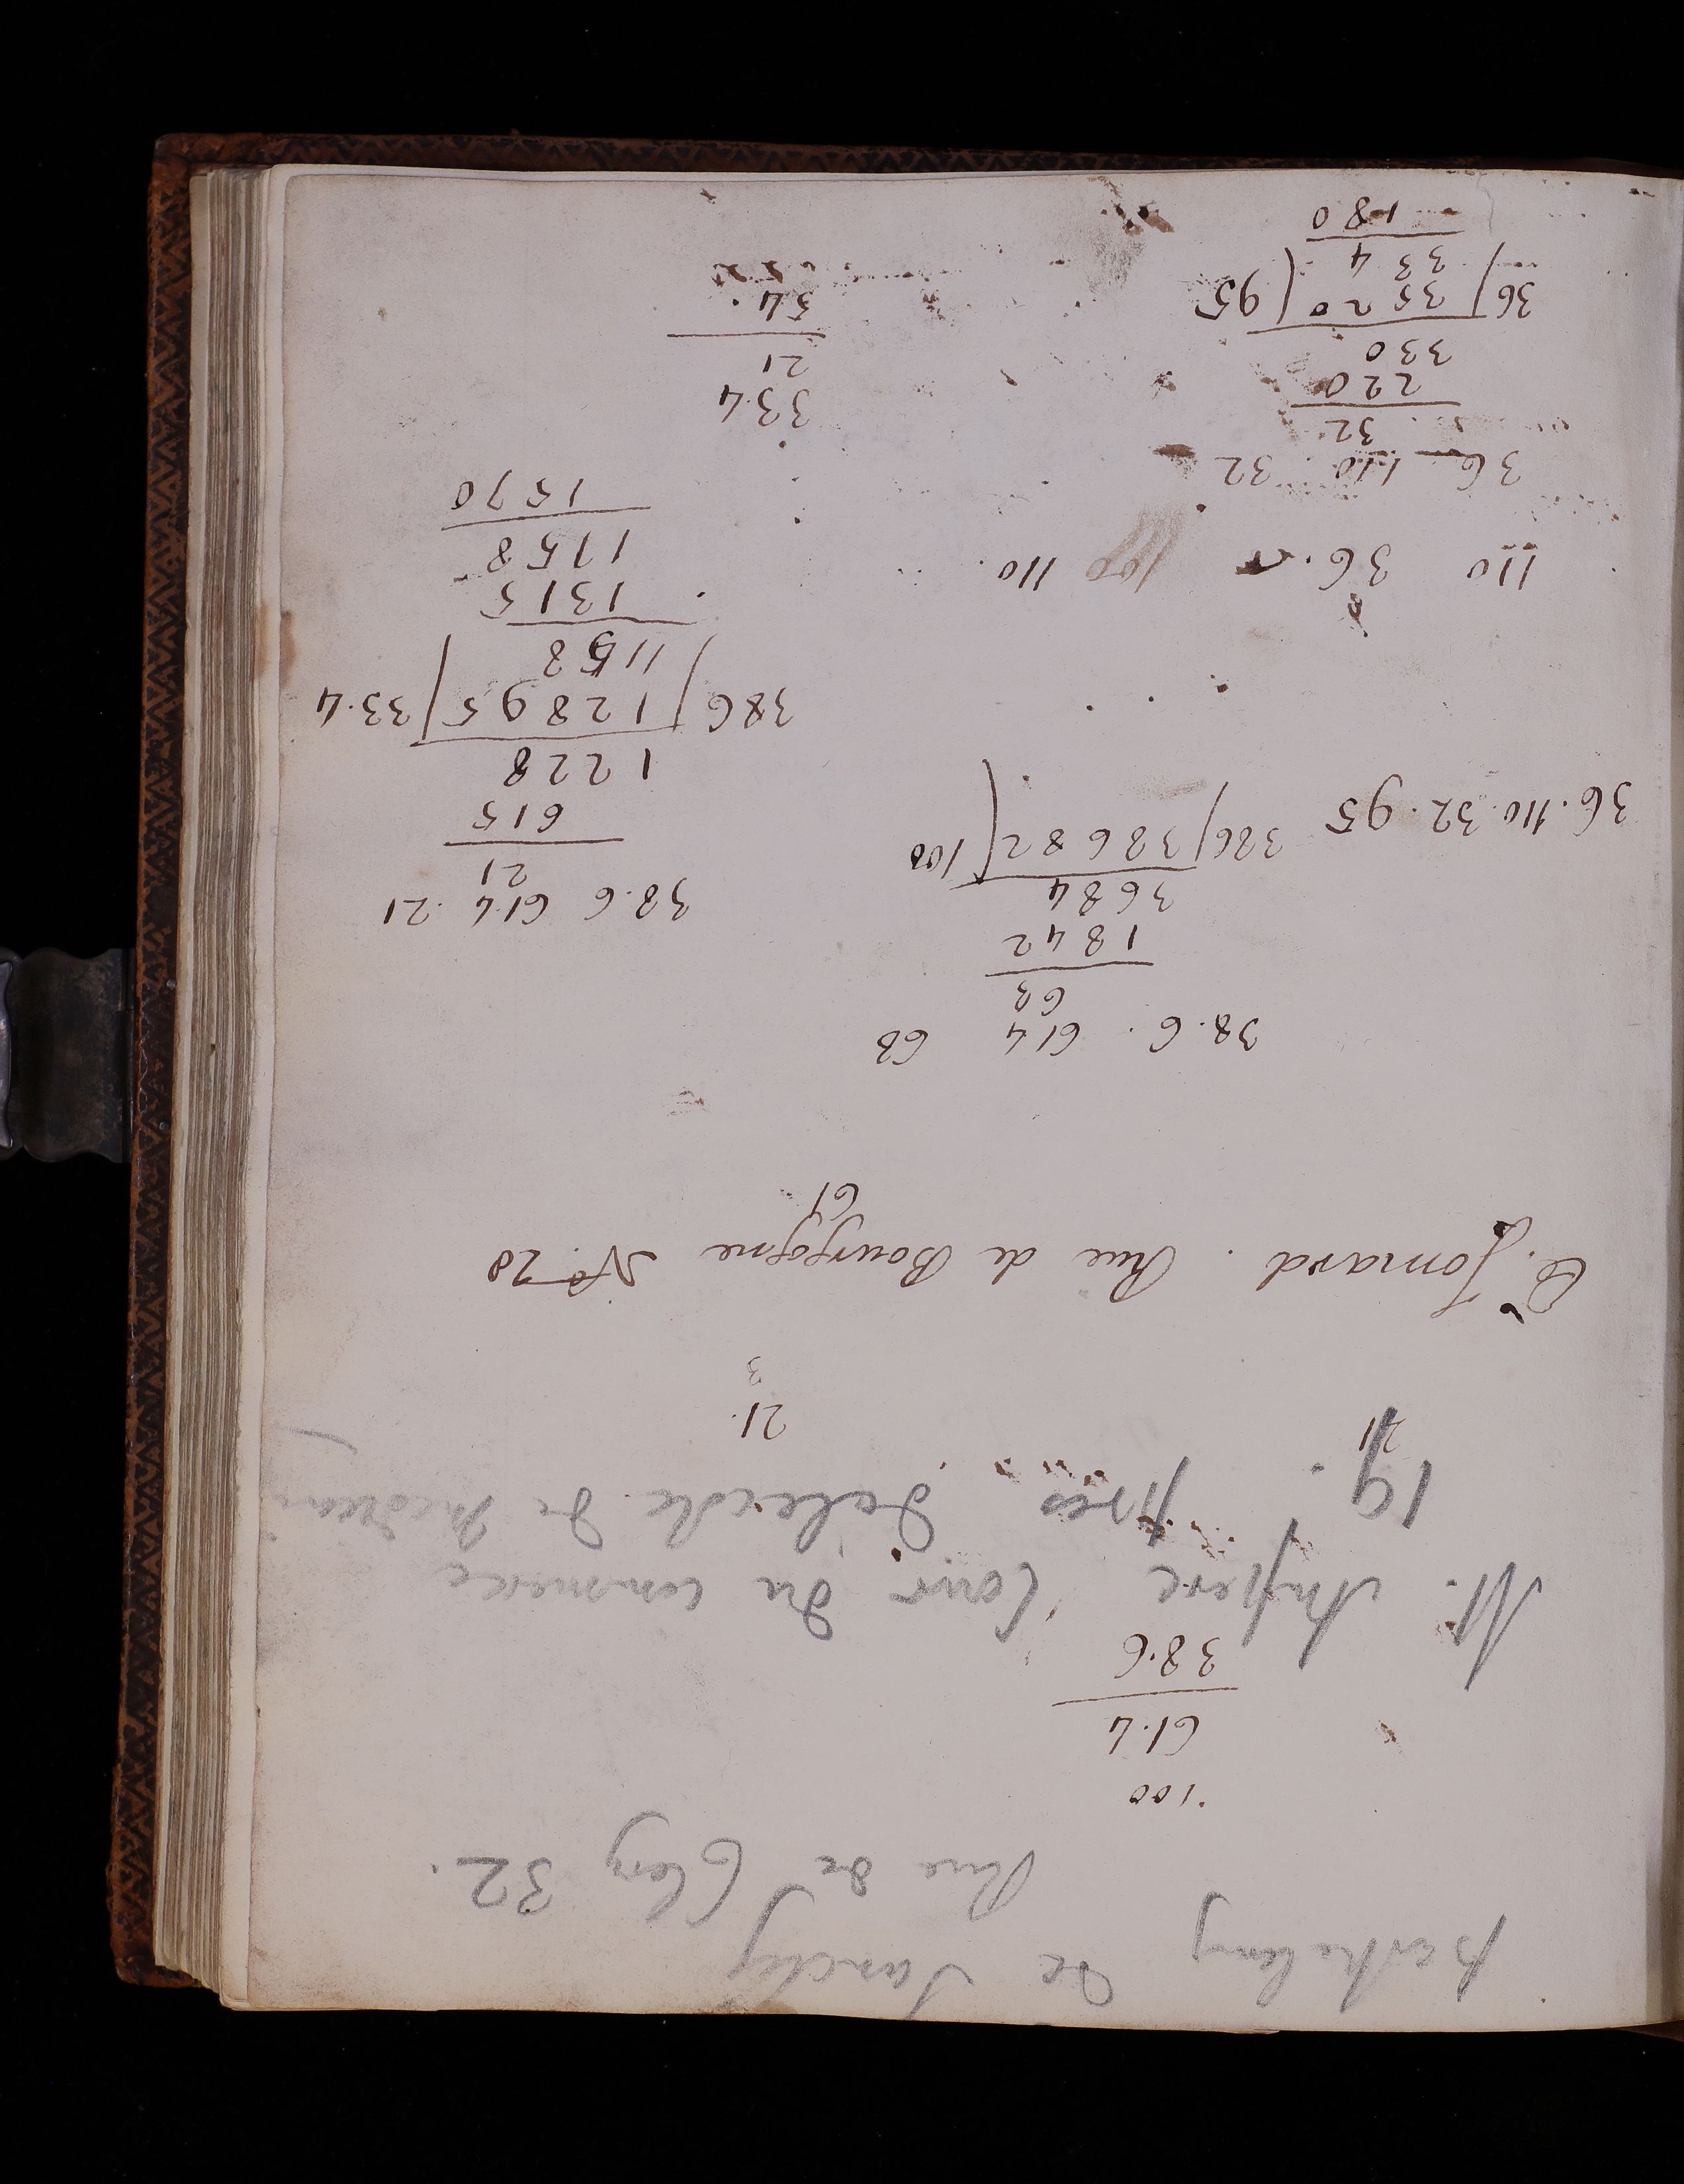 de Jancly
Rue de Clery 32.
100
61.4
38.6
M. Ampere Cour du commerce
19. pres de l'ecole de medecine
21
21.
3
E. Jomard. Rue de Bourgogne No. 28
61
38.6. 614 63
63
1842
3684
386)38682(100
36.110.32.95
38.6 61.4.21
21
615
1228
386)12895(33.4
1158
1315
1158
1570
110 36. 100 110.
36 110 32
32
220
330
36)3520(95
334
180
33.4
21
54.